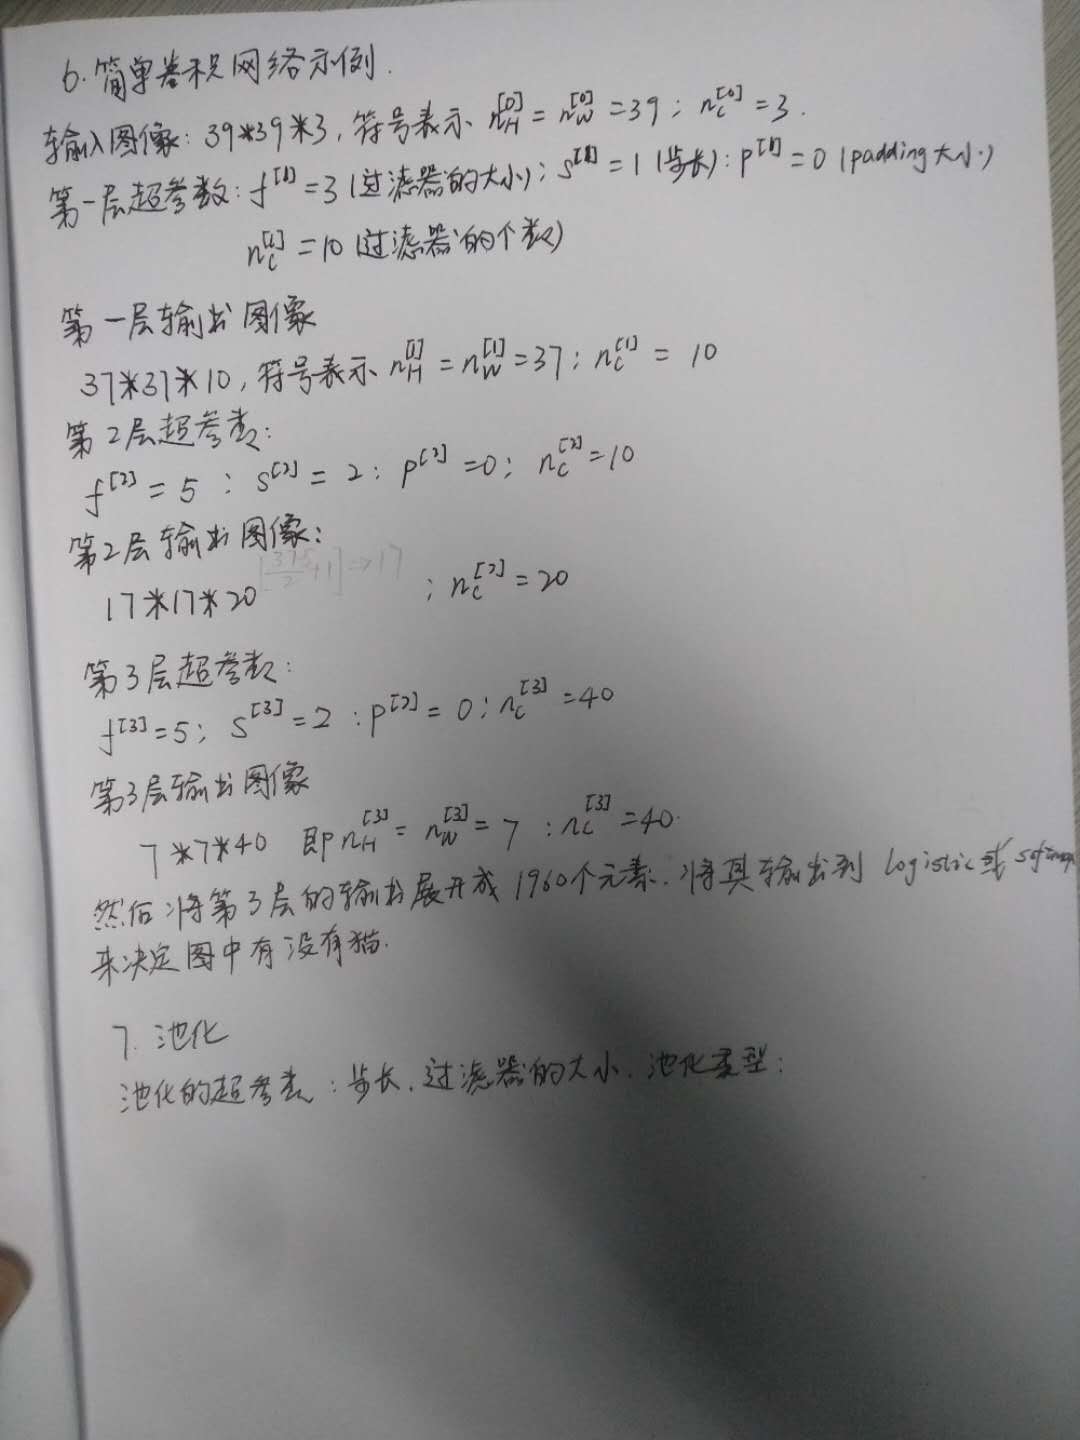 6. 简单卷积网络示例.
输入图像: 39*39*3, 符号表示 n_H^[0] = n_W^[0] = 39; n_C^[0] = 3.
第一层超参数: f^[1] = 3 (过滤器的大小); s^[1] = 1 (步长): p^[1] = 0 (padding大小)
n_C^[1] = 10 (过滤器的个数)
第一层输出图像
37*37*10, 符号表示 n_H^[1] = n_W^[1] = 37; n_C^[1] = 10
第2层超参数:
f^[2] = 5 ; s^[2] = 2: p^[2] = 0; n_C^[2] = 10
第2层输出图像:
17*17*20 ; n_C^[2] = 20
第3层超参数:
f^[3] = 5; s^[3] = 2 : p^[2] = 0; n_C^[3] = 40
第3层输出图像
7*7*40 即 n_H^[3] = n_W^[3] = 7 : n_C^[3] = 40.
然后将第3层的输出展开成1960个元素. 将其输出到 logistic或
来决定图中有没有猫.
7. 池化
池化的超参数: 步长. 过滤器的大小. 池化类型: